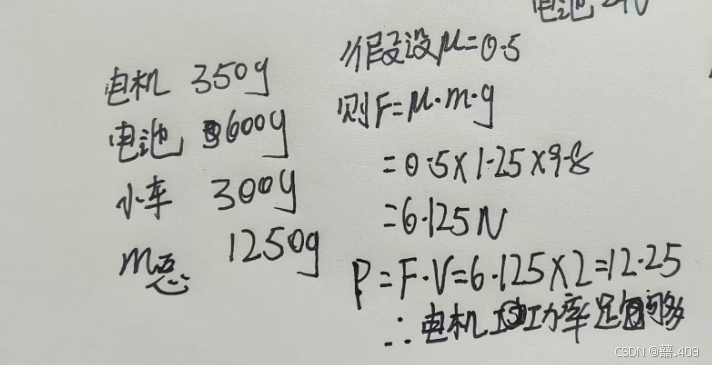 电池24V
电机 350g
电池 600g
小车 300g
m总 1250g
假设μ=0.5
则F=μ·m·g
=0.5×1.25×9.8
=6.125N
P=F·V=6.125×2=12.25
∴电机功率足够
CSDN @囍.409